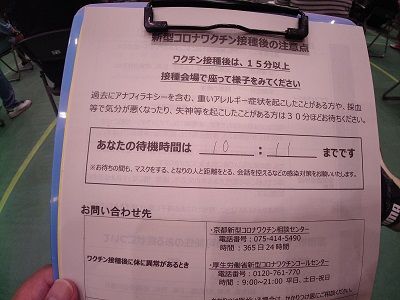 新型コロナワクチン接種後の注意点
ワクチン接種後は、15分以上
接種会場で座って様子をみてください
過去にアナフィラキシーを含む、重いアレルギー症状を起こしたことがある方や、採血
等で気分が悪くなったり、失神等を起こしたことがある方は30分ほどお待ちください。
あなたの待機時間は 10 : 11 までです
※お待ちの間も、マスクをする、となりの人と距離をとる、会話を控えるなどの感染対策をお願いいたします。
お問い合わせ先
ワクチン接種後に体に異常があるとき
・京都新型コロナワクチン相談センター
電話番号：075-414-5490
時間：365日24時間
・厚生労働省新型コロナワクチンコールセンター
電話番号：0120-761-770
時間：9:00~21:00 平日、土日・祝日